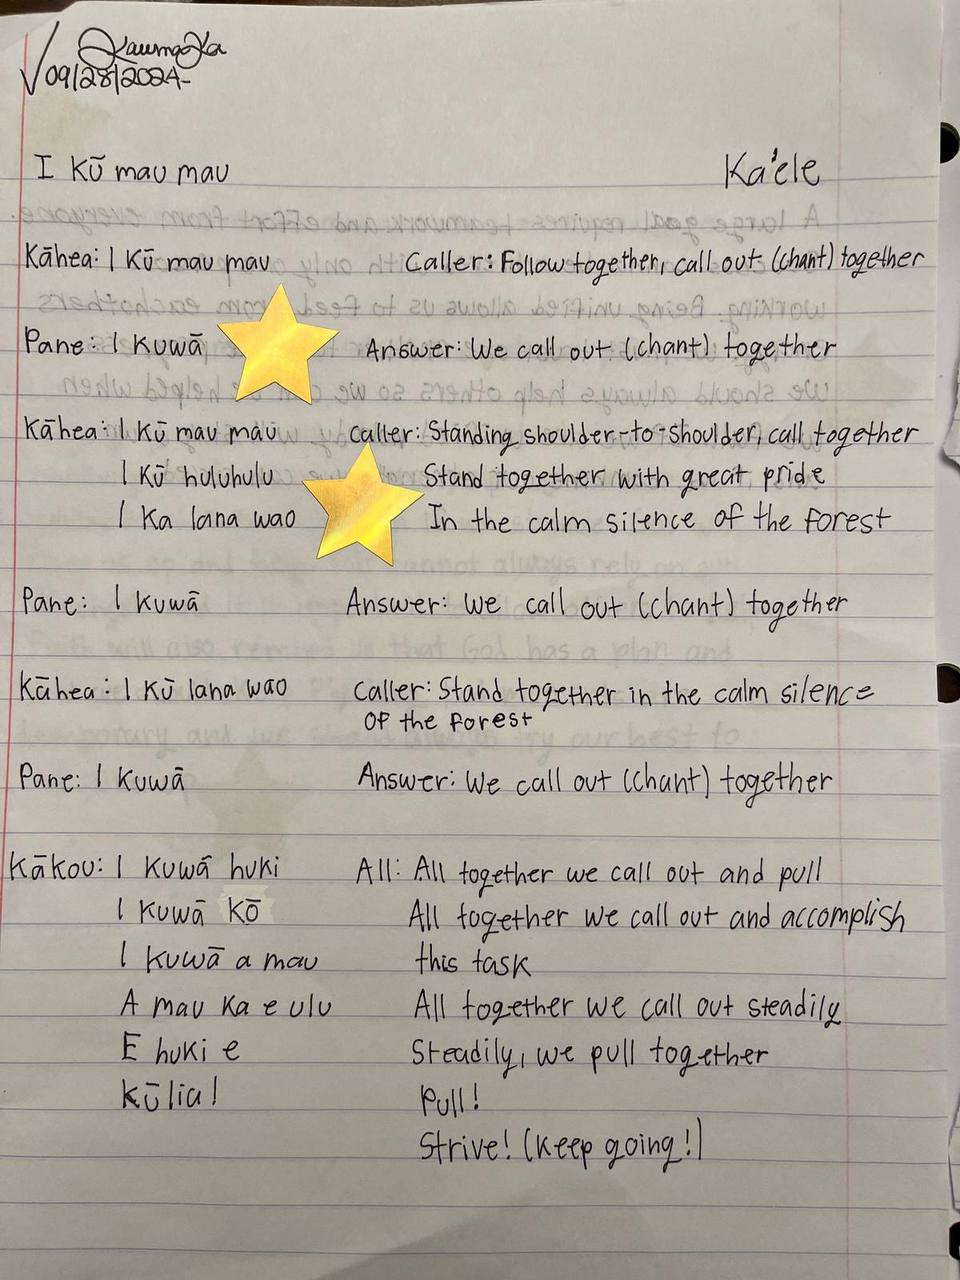 09/28/2024
I Kū mau mau Ka'ele
Kāhea: I Kū mau mau Caller: Follow together, call out (chant) together
Pane: I Kuwā Answer: We call out (chant) together
Kāhea: I Kū mau mau Caller: Standing shoulder-to-shoulder, call together
I Kū huluhulu Stand together with great pride
I Ka lana wao In the calm silence of the forest
Pane: I Kuwā Answer: We call out (chant) together
Kāhea: I Kū lana wao Caller: Stand together in the calm silence
of the forest
Pane: I Kuwā Answer: We call out (chant) together
Kākou: I Kuwā huki All: All together we call out and pull
I Kuwā Kō All together we call out and accomplish
I Kuwā a mau this task
A mau Ka e ulu All together we call out steadily
E huki e Steadily, we pull together
Kūlia! Pull!
Strive! (Keep going!)